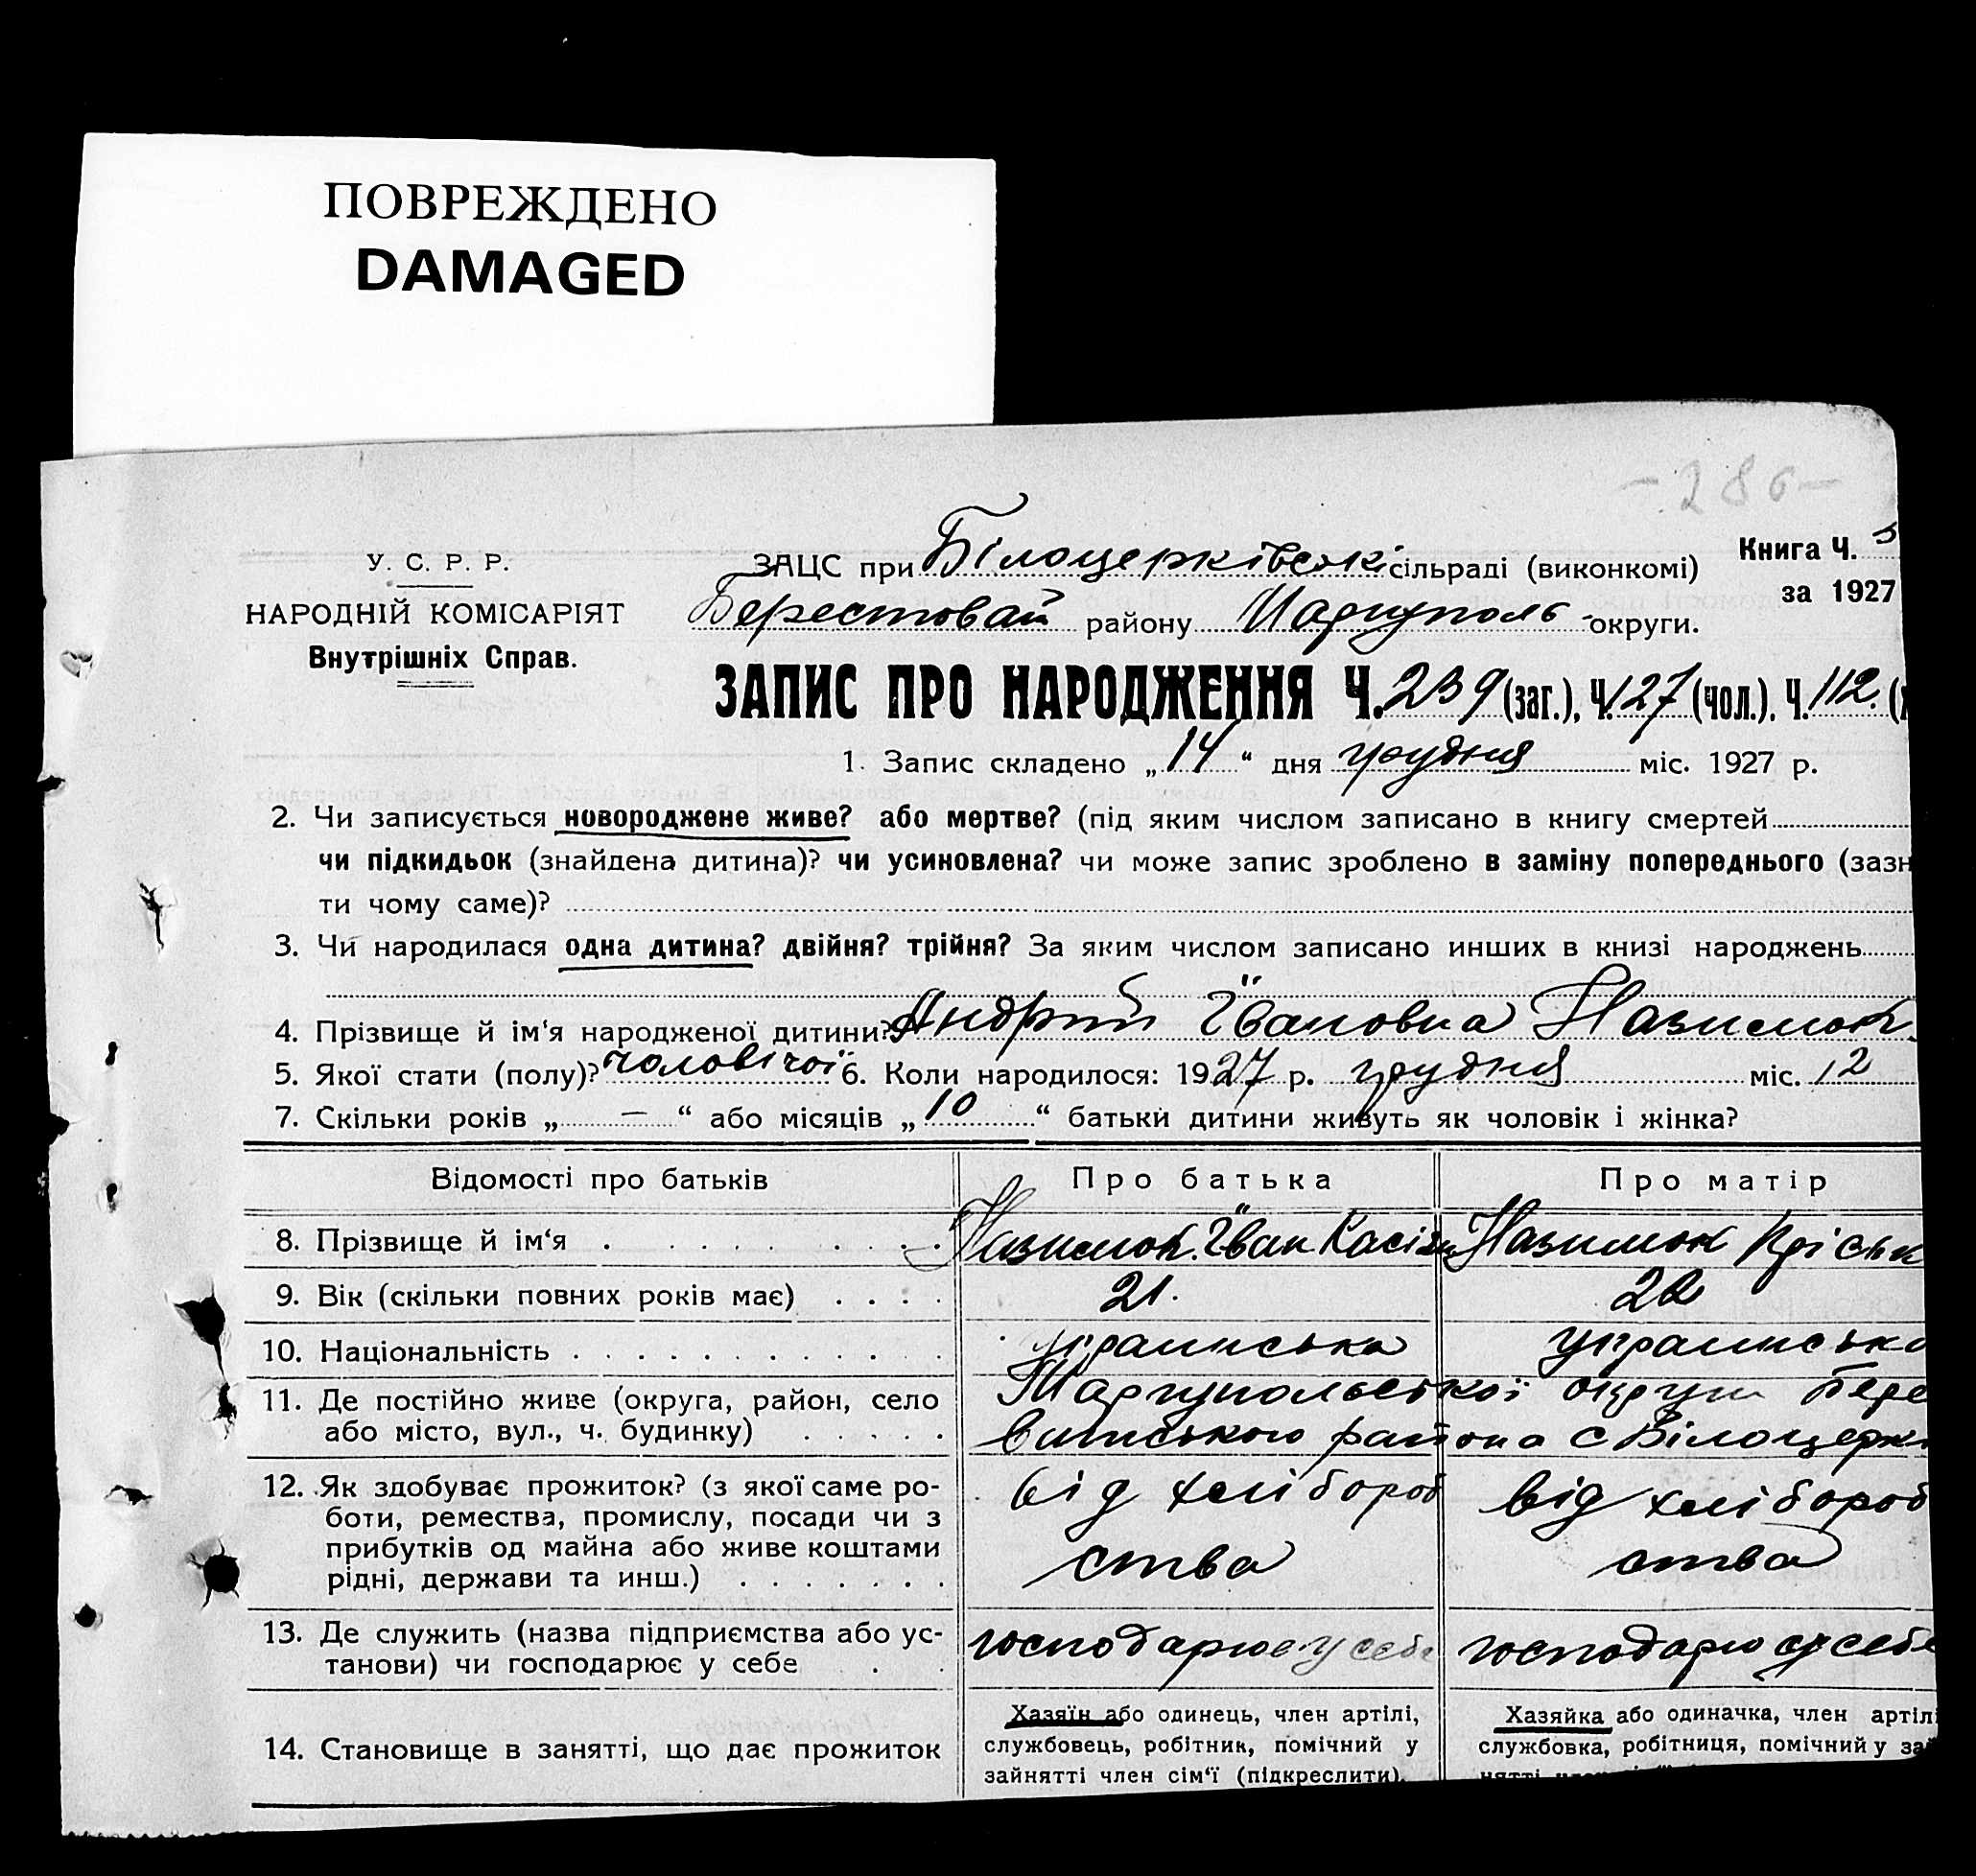 ПОВРЕЖДЕНО
DAMAGED
- 286 -
У. С. Р. Р.
НАРОДНІЙ КОМІСАРІЯТ
Внутрішніх Справ.
ЗАЦС при Білоцерківскі сільраді (виконкомі)
Книга Ч.
за 1927
Берестовай району Маріуполь- округи.
ЗАПИС ПРО НАРОДЖЕННЯ Ч. 239 (заг.), Ч. 127 (чол.), Ч. 112. (
1. Запис складено „ 14 “ дня грудня міс. 1927 р.
2. Чи записується новороджене живе? або мертве? (під яким числом записано в книгу смертей
чи підкидьок (знайдена дитина)? чи усиновлена? чи може запис зроблено в заміну попереднього (зазн
ти чому саме)?
3. Чи народилася одна дитина? двійня? трійня? За яким числом записано инших в книзі народжень
4. Прізвище й ім‘я народженої дитини? Андрій Івановиа Назимок
5. Якої стати (полу)? чоловічої 6. Коли народилося: 1927 р. грудня міс. 12
7. Скільки років „ — “ або місяців „ 10 “ батьки дитини живуть як чоловік і жінка?
Відомості про батьків Про батька Про матір
8. Прізвище й ім‘я Назимок. Іван Назимок
9. Вік (скільки повних років має) 21. 22
10. Національність украинська украинська
11. Де постійно живе (округа, район, село Маріупольської округи Бере
або місто, вул., ч. будинку) района с Білоцерк
12. Як здобуває прожиток? (з якої саме ро- від хлібороб від хлібороб
боти, ремества, промислу, посади чи з
прибутків од майна або живе коштами ства ства
рідні, держави та инш.)
13. Де служить (назва підприємства або ус- господарює у себе господарює у себе
танови) чи господарює у себе
14. Становище в занятті, що дає прожиток
Хазяїн або одинець, член артілі,
службовець, робітник, помічний у
зайнятті член сім‘ї (підкреслити).
Хазяйка або одиначка, член артіл
службовка, робітниця, помічний у за